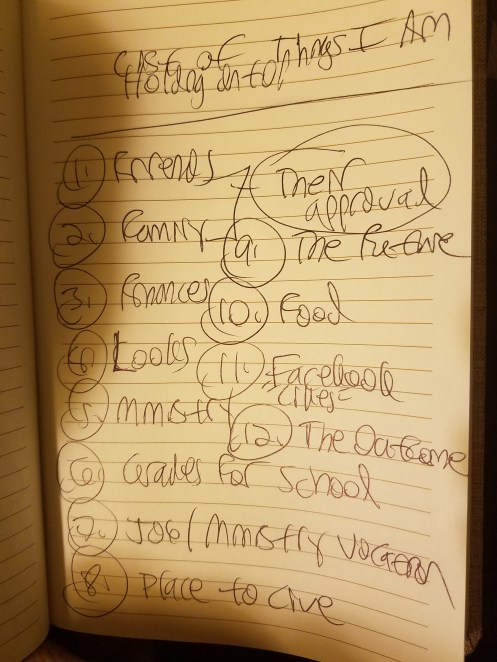 List of things I Am
Holding onto!
1. Friends
Their
approval
2. Family
9. The Future
3. Finances
10. Food
4. Looks
11. Facebook
likes
5. Ministry
12. The Outcome
6. Grades for school
7. Job/Ministry Vocation
8. Place to Live